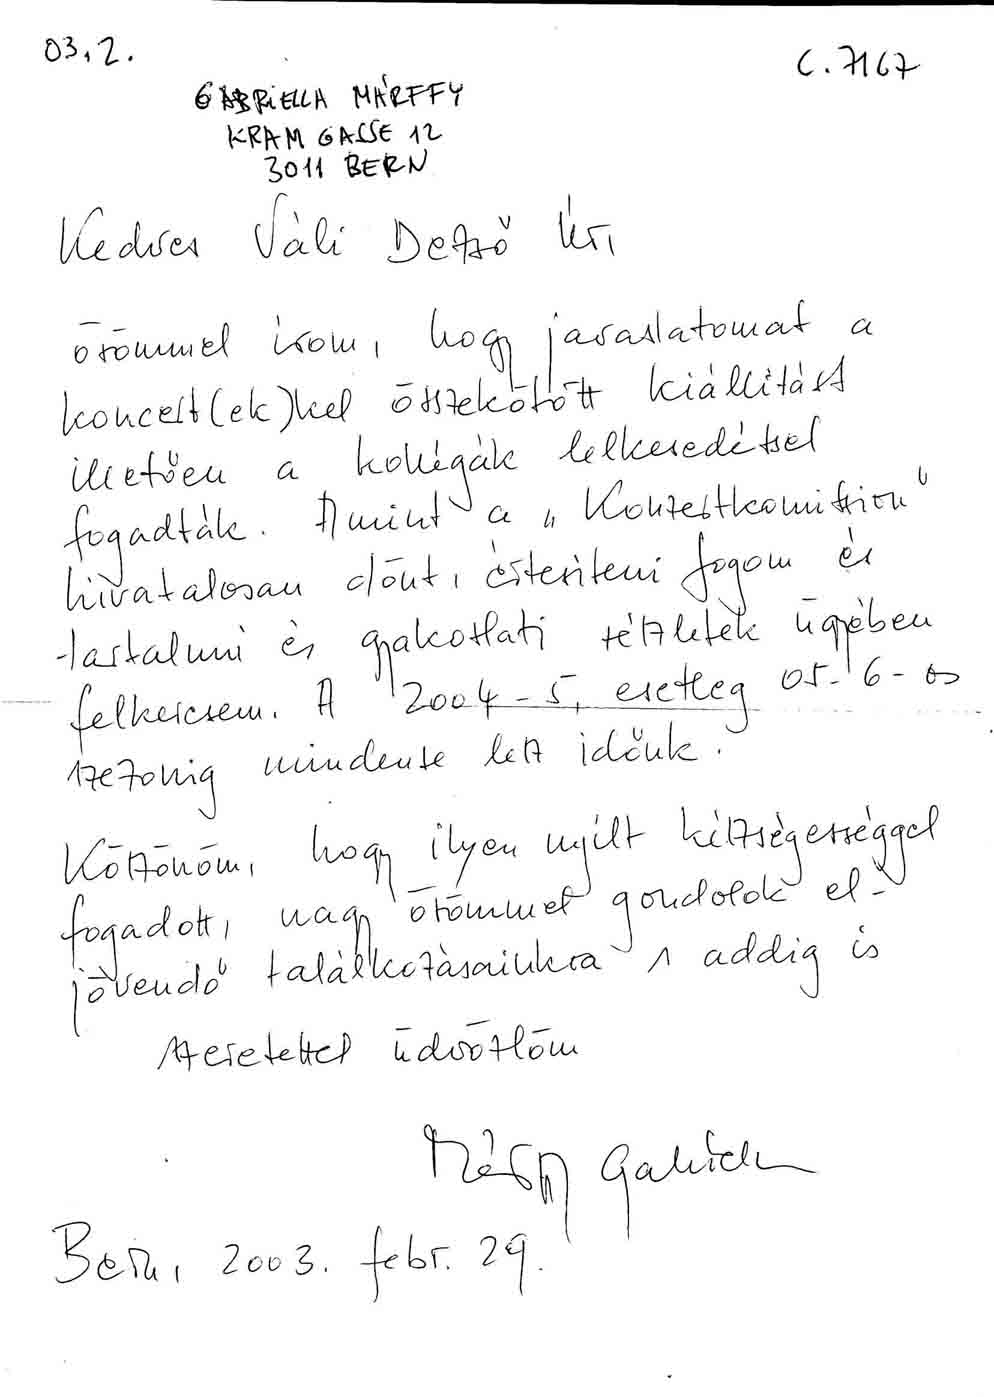 03.2.
C.7167
GABRIELLA MÁRFFY
KRAMGASSE 12
3011 BERN
Kedves Váli Dezső Úr,
örömmel írom, hogy javaslatomat a
koncert(ek)kel összekötött kiállítást
illetően a kollégák lelkesedéssel
fogadták. Amint a „Konzertkomission"
hivatalosan dönt, értesíteni fogom és
tartalmi és gyakorlati részletek ügyében
felkeresem. A 2004-5, esetleg 05-6-os
szezonig mindenre lesz időnk.
Köszönöm, hogy ilyen nyílt készségességgel
fogadott, nagy örömmel gondolok el-
jövendő találkozásainkra s addig is
szeretettel üdvözlöm
Márffy Gabriella
Bern, 2003. febr. 29.